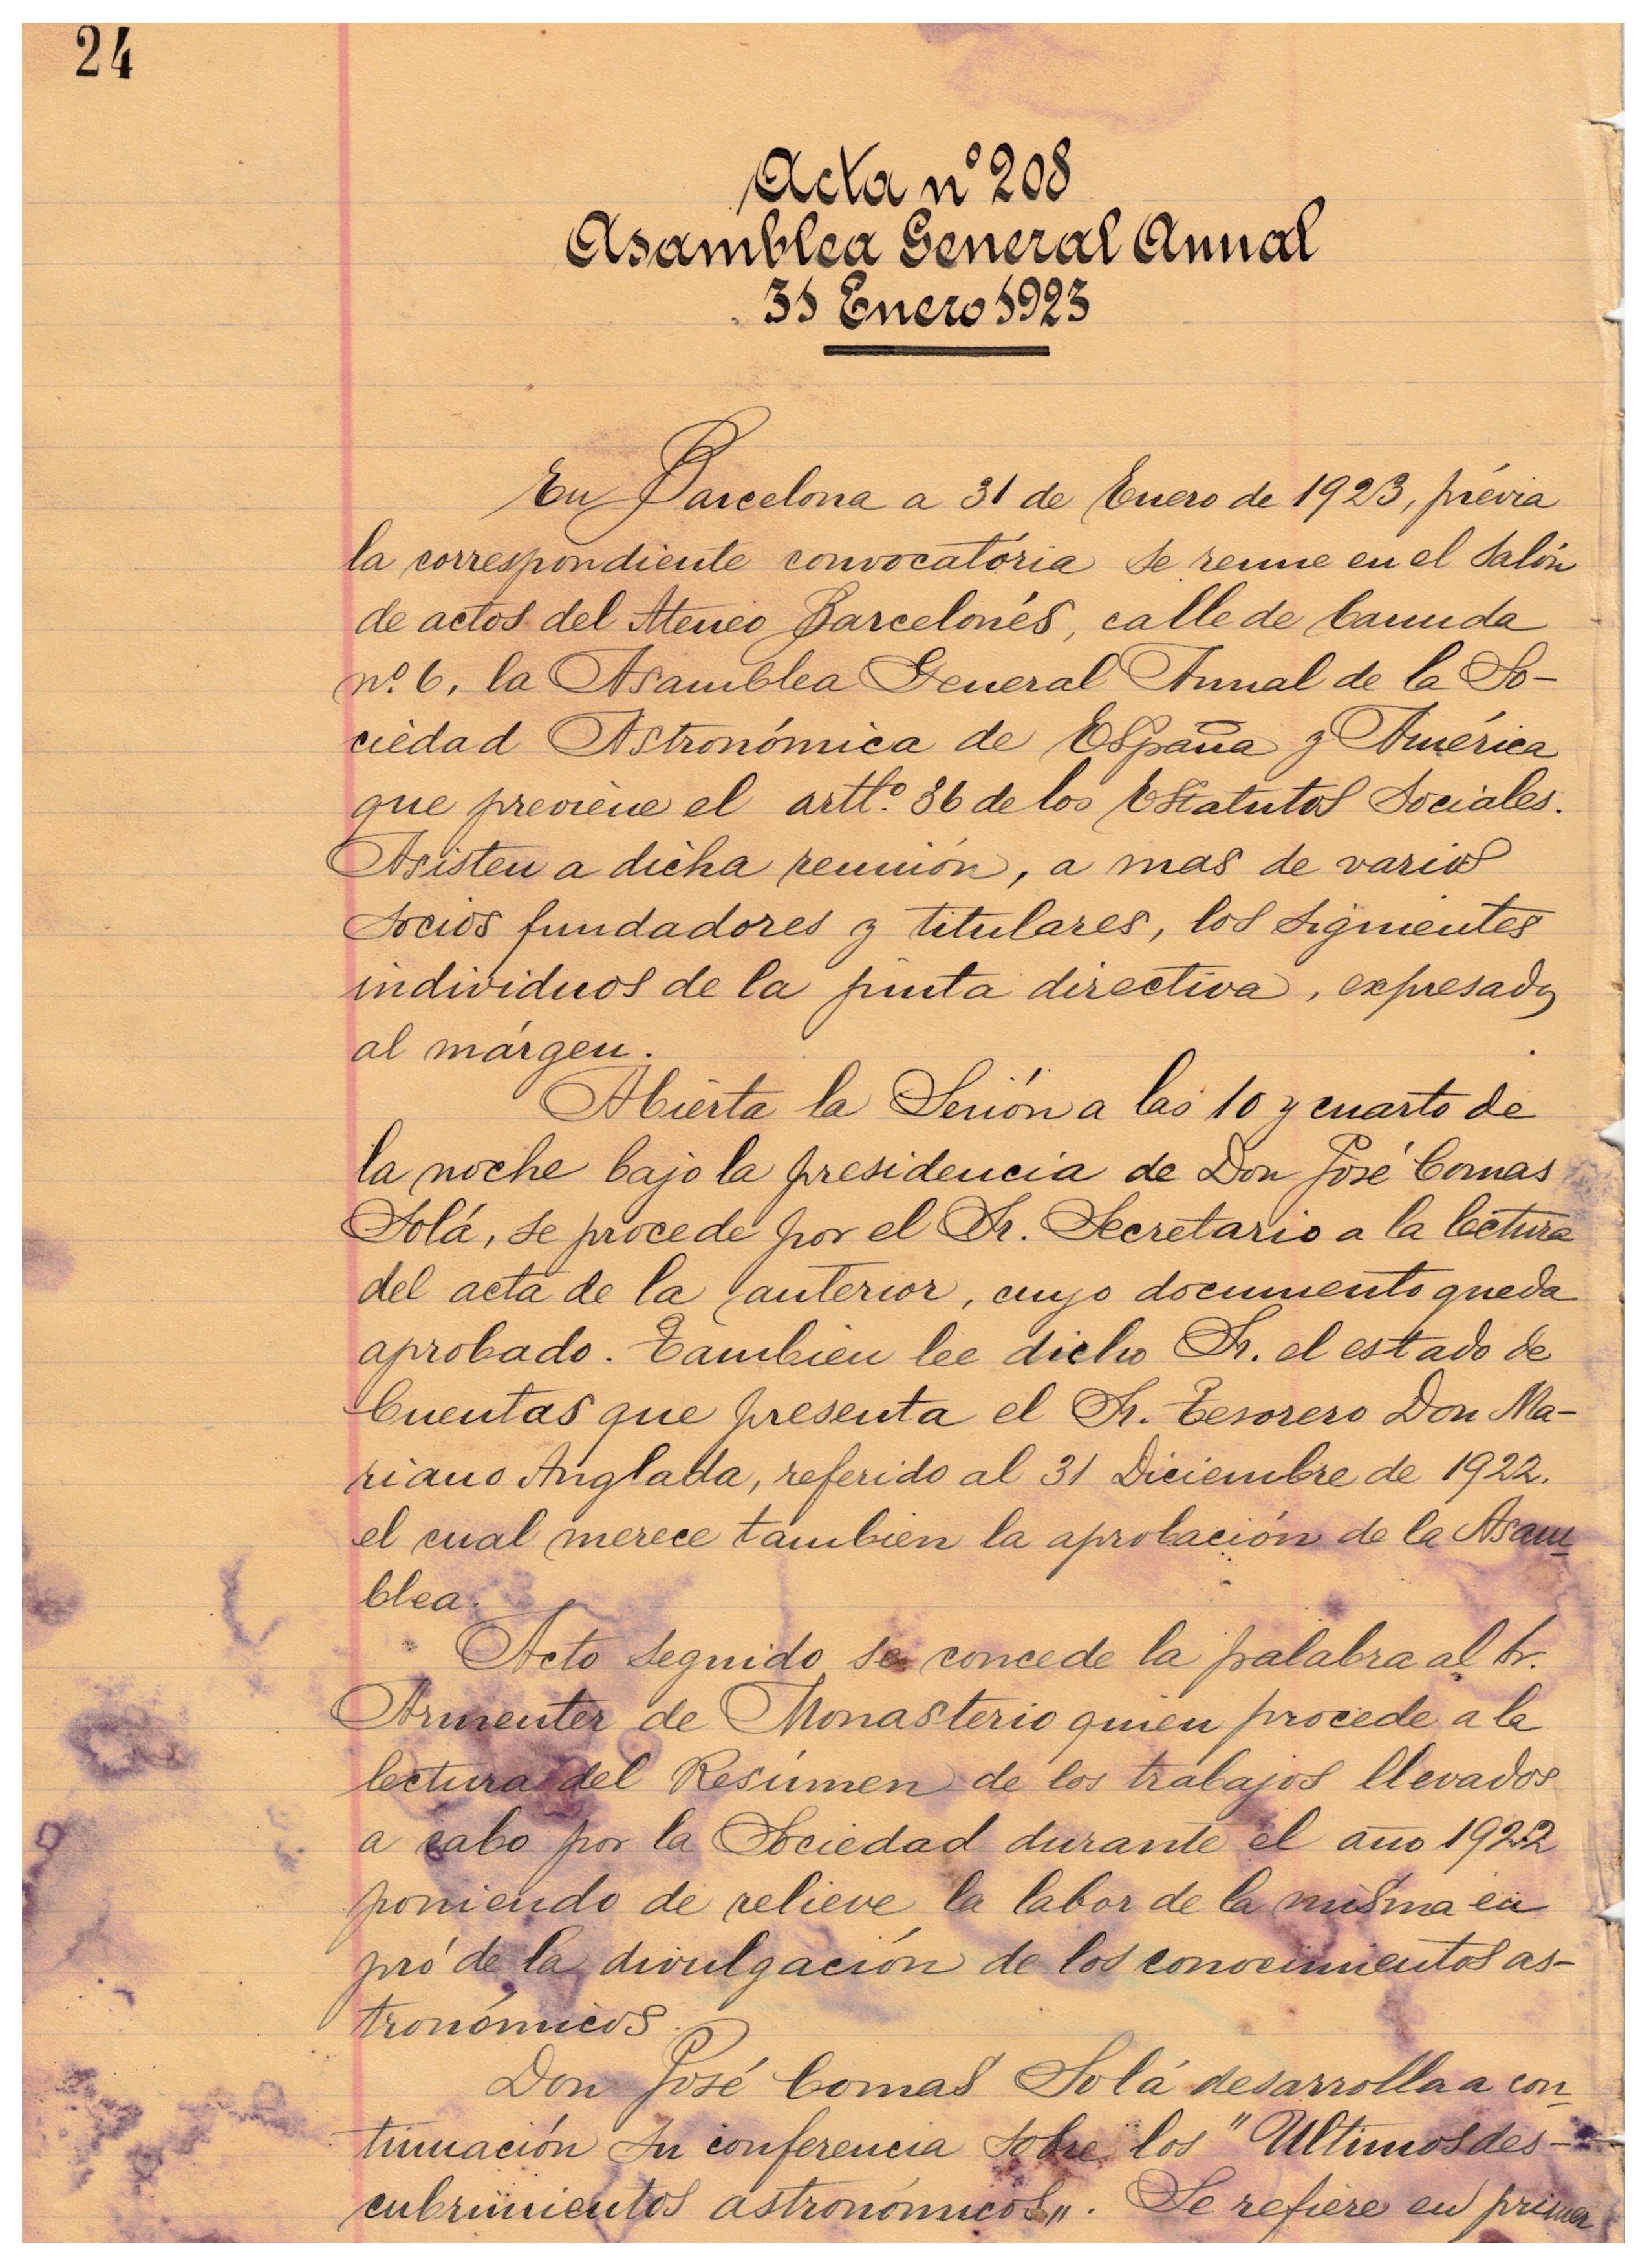 24
Acta nº 208
Asamblea General Anual
31 Enero 1923
En Barcelona a 31 de Enero de 1923, prévia
la correspondiente convocatória se reune en el salón
de actos del Ateneo Barcelonés, calle de Canuda
nº 6, la Asamblea General Anual de la So-
ciedad Astronómica de España y América
que previene el artlº 36 de los Estatutos Sociales.
Asisten a dicha reunión, a mas de varios
socios fundadores y titulares, los siguientes
individuos de la junta directiva, expresados
al márgen.
Abierta la Sesión a las 10 y cuarto de
la noche bajo la presidencia de Don José Comas
Solá, se procede por el Sr. Secretario a la lectura
del acta de la anterior, cuyo documento queda
aprobado. Tambien lee dicho Sr. el estado de
Cuentas que presenta el Sr. Tesorero Don Ma-
riano Anglada, referido al 31 Diciembre de 1922.
el cual merece tambien la aprobación de la Asam-
blea.
Acto seguido se concede la palabra al Sr.
Armenter de Monasterio quien procede a la
lectura del Resúmen de los trabajos llevados
a cabo por la Sociedad durante el año 1922
poniendo de relieve la labor de la misma en
pró de la divulgación de los conocimientos as-
tronómicos.
Don José Comas Solá desarrolla a con-
tinuación su conferencia sobre los "Ultimos des-
cubrimientos astronómicos". Se refiere en primer